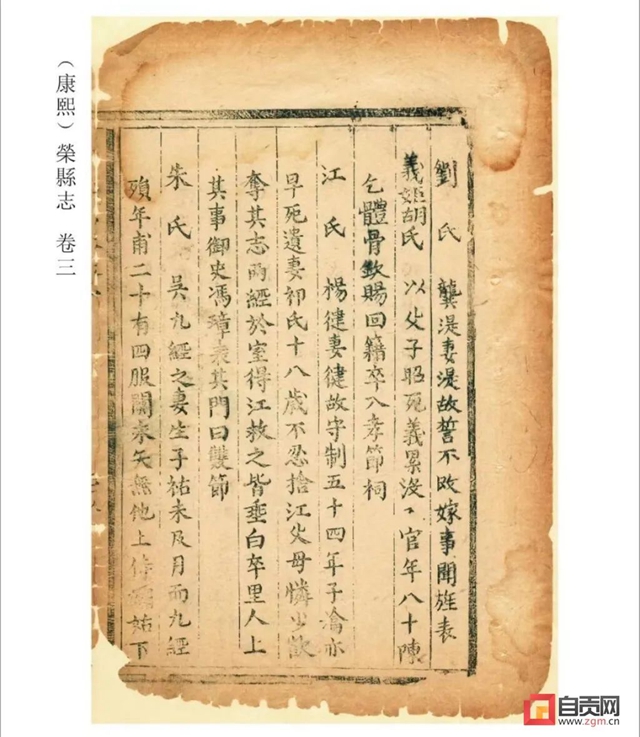 （康熙）榮縣志 卷三
劉氏 龔湜妻湜故誓不改嫁事聞旌表
義姬胡氏 以父子昭死義累没官年八十陳
乞體骨欽賜回籍卒入孝節祠
江氏 楊健妻健故守制五十四年子瀹亦
早死遺妻祁氏十八歲不忍捨江父母憐少欲
奪其志兩經於室得江救之皆垂白卒里人上
其事御史馮璋表其門曰雙節
朱氏 吳九經之妻生子祐未及月而九經
殞年甫二十有四服闋來矢無他上侍姑下
自贡网
www.zgm.cn